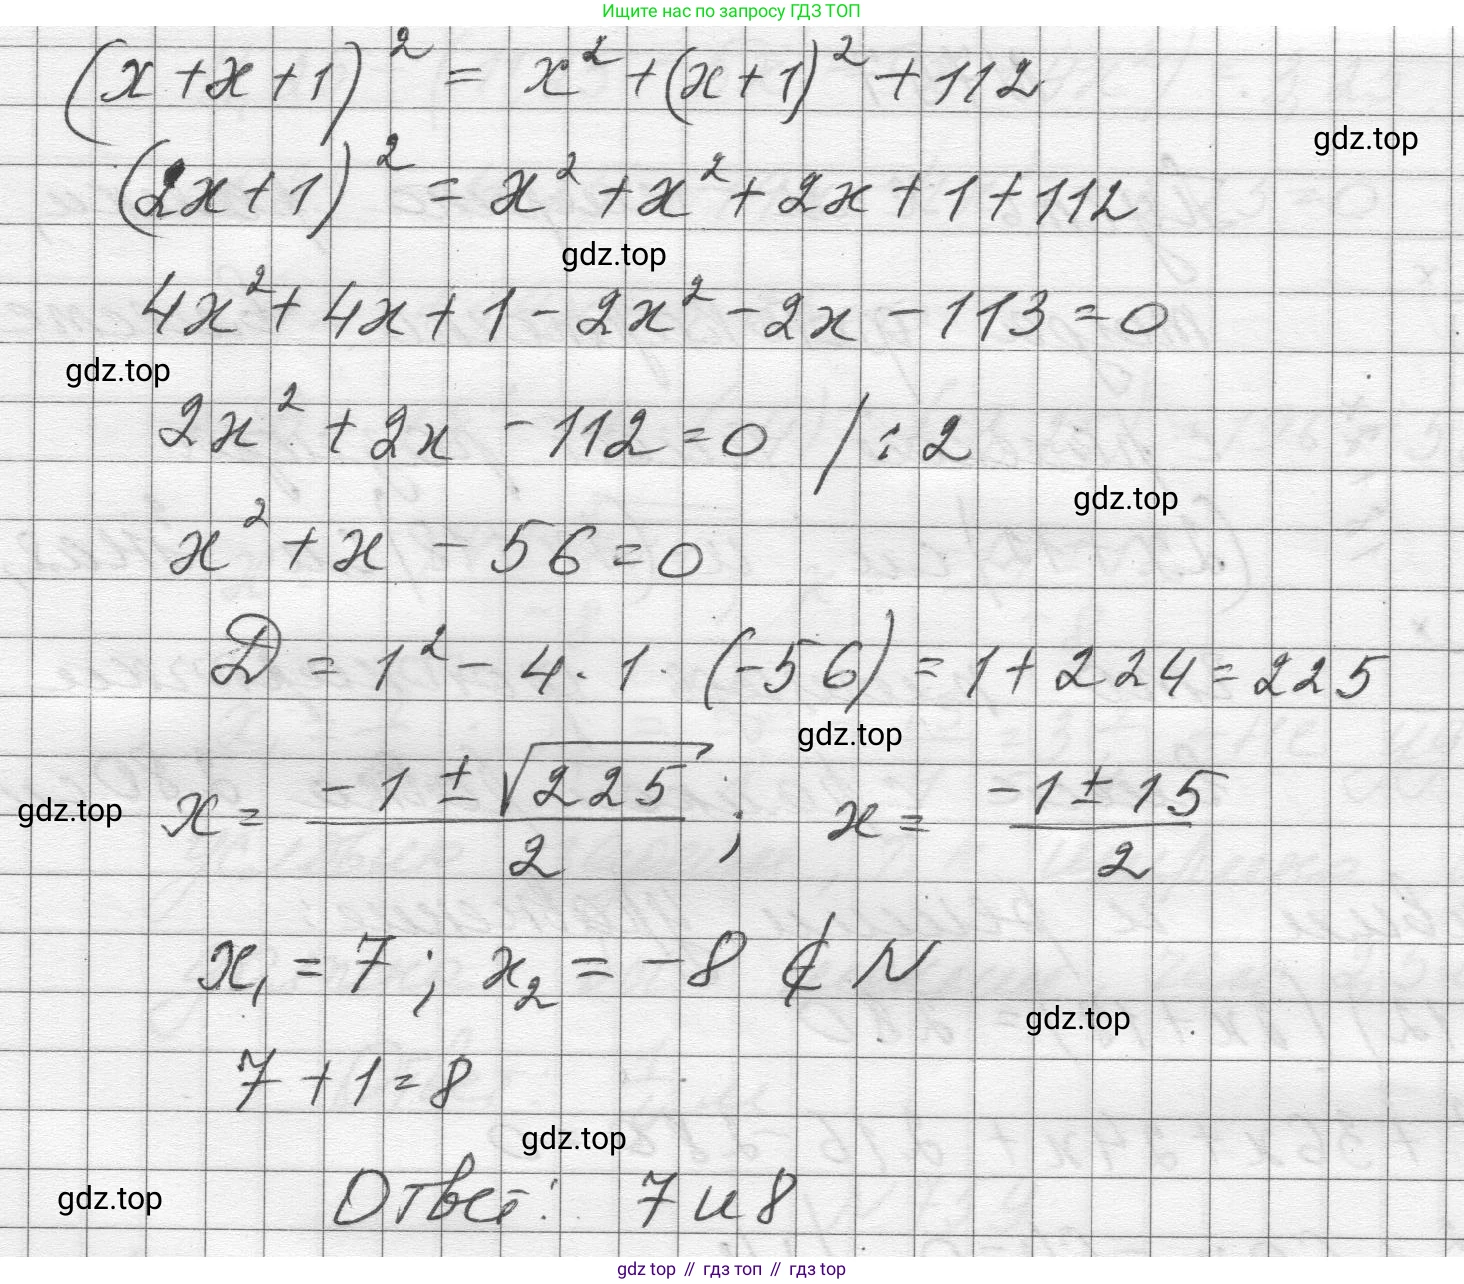 Ищите нас по запросу ГДЗ ТОП
(x + x + 1)² = x² + (x + 1)² + 112
gdz.top
(2x + 1)² = x² + x² + 2x + 1 + 112
gdz.top
4x² + 4x + 1 - 2x² - 2x - 113 = 0
gdz.top
2x² + 2x - 112 = 0 / : 2
gdz.top
x² + x - 56 = 0
D = 1² - 4 · 1 · (-56) = 1 + 224 = 225
gdz.top
gdz.top
x = (-1 ± √225)/2 ; x = (-1 ± 15)/2
x₁ = 7; x₂ = -8 ∉ N
gdz.top
7 + 1 = 8
gdz.top
gdz.top
Ответ: 7 и 8
gdz top // гдз топ // гдз top